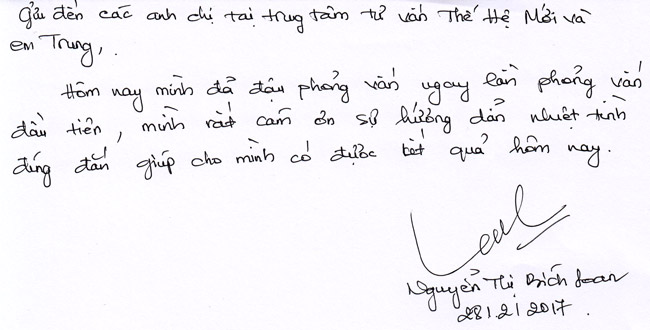 Gửi đến các anh chị tại trung tâm tư vấn Thế Hệ Mới và
em Trung,.
Hôm nay mình đã đậu phỏng vấn ngay lần phỏng vấn
đầu tiên, mình rất cám ơn sự hướng dẫn nhiệt tình
đúng đắn giúp cho mình có được kết quả hôm nay.
Nguyễn Thị Bích Loan
28/2/2017.